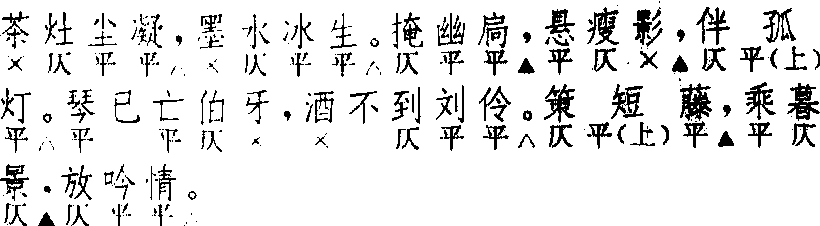 茶灶尘凝,墨水冰生。掩幽扃,悬瘦影,伴孤
× 仄 平 平 △ × 仄 平 平 △ 仄 平 平 ▲ 平 仄 × ▲ 仄 平(上)
灯。琴已亡伯牙,酒不到刘伶。策短藤,乘暮
平 △ 平 平 仄 × × 仄 平 平 △ 仄 平(上) 平 ▲ 平 仄
景,放吟情。
仄 ▲ 仄 平 平 △